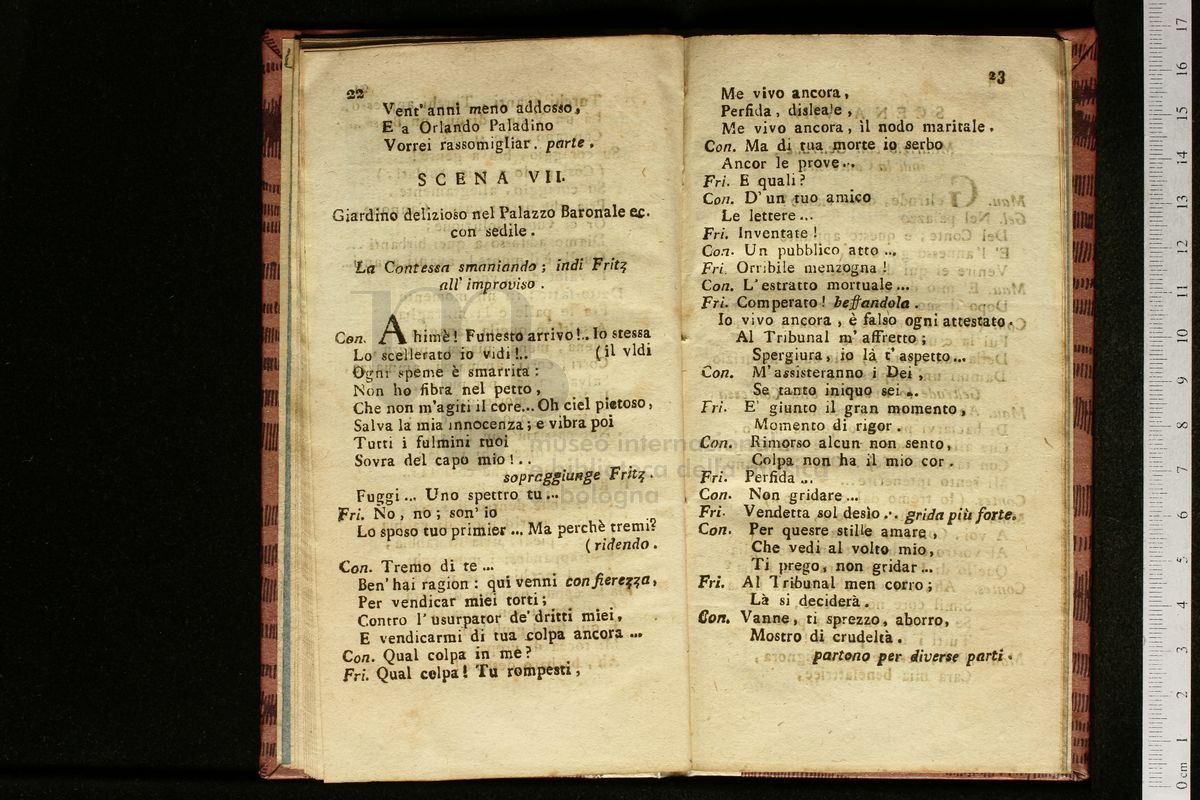 22
Vent' anni meno addosso,
E a Orlando Paladino
Vorrei rassomigliar. parte.
SCENA VII.
Giardino delizioso nel Palazzo Baronale ec.
con sedile.
La Contessa smaniando; indi Fritz
all' improviso.
Con. Ahimè! Funesto arrivo!.. Io stessa
Lo scellerato io vidi!.. (il vidi
Ogni speme è smarrita:
Non ho fibra nel petto,
Che non m'agiti il core... Oh ciel pietoso,
Salva la mia innocenza; e vibra poi
Tutti i fulmini tuoi
Sovra del capo mio!..
sopraggiunge Fritz.
Fuggi... Uno spettro tu...
Fri. No, no; son' io
Lo sposo tuo primier... Ma perchè tremi?
(ridendo.
Con. Tremo di te...
Ben' hai ragion: qui venni con fierezza,
Per vendicar miei torti;
Contro l' usurpator de' dritti miei,
E vendicarmi di tua colpa ancora...
Con. Qual colpa in me?
Fri. Qual colpa! Tu rompesti,
23
Me vivo ancora,
Perfida, disleale,
Me vivo ancora, il nodo maritale.
Con. Ma di tua morte io serbo
Ancor le prove...
Fri. E quali?
Con. D' un tuo amico
Le lettere...
Fri. Inventate!
Con. Un pubblico atto...
Fri. Orribile menzogna!
Con. L' estratto mortuale...
Fri. Comperato! beffandola.
Io vivo ancora, è falso ogni attestato.
Al Tribunal m' affretto;
Spergiura, io là t' aspetto...
Con. M' assisteranno i Dei,
Se tanto iniquo sei...
Fri. E' giunto il gran momento,
Momento di rigor.
Con. Rimorso alcun non sento,
Colpa non ha il mio cor.
Fri. Perfida...
Con. Non gridare...
Fri. Vendetta sol desìo... grida più forte.
Con. Per quesre stille amare,
Che vedi al volto mio,
Ti prego, non gridar...
Fri. Al Tribunal men corro;
Là si deciderà.
Con. Vanne, ti sprezzo, aborro,
Mostro di crudeltà.
partono per diverse parti.
museo internazionale
e biblioteca della musica
bologna
0 cm 1 2 3 4 5 6 7 8 9 10 11 12 13 14 15 16 17